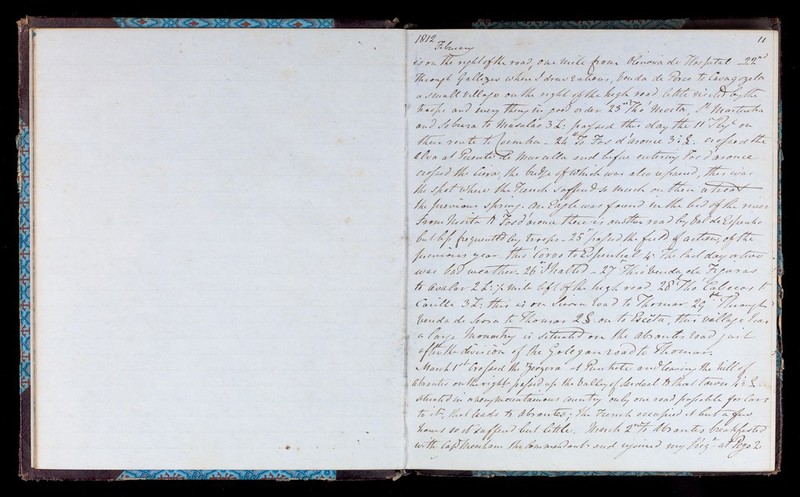 1812 11
February
is on the right of the road, one mile from Venda de Hospital 22nd
through Gallizes where I drew rations, Venda de Porco to
a small village on the right of the high road little visited by the
troops and every thing in good order 23rd Tho' Moita, St Martinho
and to 3 L: passed this day the 11 Regt on
their route to Coimbra. 24th To Fos d'arouce 3½ L. crossed the
Alva at Puente de Murcella and before entering Fos d'arouce
crossed the Ceira, the bridge of which was also repaired, this was
the spot where the French suffered so much on their retreat
the previous spring. An Eagle was found in the bed of the river
From Moita to Fos d'arouce there is another road by Val de Espinho
but less frequented by troops - 25th passed the field of action of the
previous year thro' Corvo to Espinhal 4 L. The last day or two
was bad weather. 26th Halted - 27th Thro' Venda de Figuras
to Avalar 2 L: ½ mile left of the high road 28th Tho' Cabacas to
3 L: this is on road to Thomar. 29th Through
Venda de Serra to Thomar 2 L on to this village has
a large Monastry is situated on the Abrantes road just
after the division of the Golegan road to Thomar.
March 1st Crossed the Zezere at Punhete and leaving the hill of
Abrantes on the right passed up the Valley of to that town 4½ L
situated in a very mountainous country only one road passable for Cars
to it, that leads to Abrantes; The French occupied it but a few
hours so it suffered but little. March 2nd To Abrantes breakfasted
with Capt the Commandant and rejoined my Regt at Pego 2